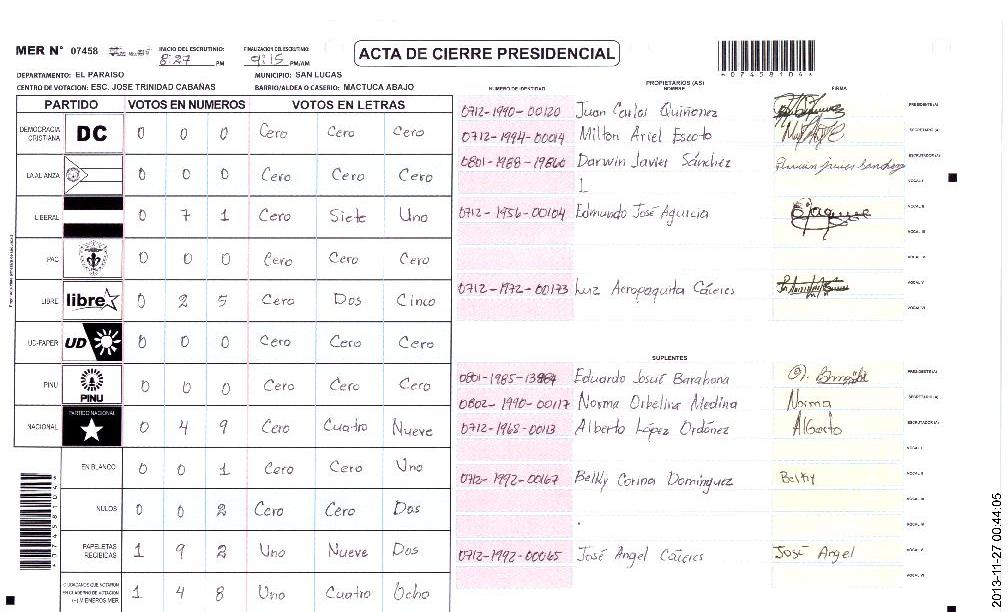 MER N° 07458
INICIO DEL ESCRUTINIO: 8:27 PM
FINALIZACION DEL ESCRUTINIO: 9:15 PM/AM
ACTA DE CIERRE PRESIDENCIAL
*07458104*
DEPARTAMENTO: EL PARAISO
MUNICIPIO: SAN LUCAS
CENTRO DE VOTACION: ESC. JOSE TRINIDAD CABAÑAS
BARRIO/ALDEA O CASERIO: MACTUCA ABAJO
PARTIDO VOTOS EN NUMEROS VOTOS EN LETRAS
DEMOCRACIA CRISTIANA DC 0 0 0 Cero Cero Cero
LA ALIANZA 0 0 0 Cero Cero Cero
LIBERAL 0 7 1 Cero Siete Uno
PAC 0 0 0 Cero Cero Cero
LIBRE libre 0 2 5 Cero Dos Cinco
UD-FAPER UD 0 0 0 Cero Cero Cero
PINU PINU 0 0 0 Cero Cero Cero
NACIONAL PARTIDO NACIONAL 0 4 9 Cero Cuatro Nueve
EN BLANCO 0 0 1 Cero Cero Uno
NULOS 0 0 2 Cero Cero Dos
PAPELETAS RECIBIDAS 1 9 2 Uno Nueve Dos
CIUDADANOS QUE VOTARON EN CUADERNO DE VOTACION (+) MIEMBROS MER 1 4 8 Uno Cuatro Ocho
PROPIETARIOS (AS)
NUMERO DE IDENTIDAD NOMBRE FIRMA
0712-1990-00120 Juan Carlos Quiñonez PRESIDENTE(A)
0712-1994-00014 Milton Ariel Escoto SECRETARIO (A)
0801-1988-19860 Darwin Javier Sánchez ESCRUTADOR (A)
1 VOCAL I
0712-1956-00104 Edmundo José Aguicia VOCAL II
VOCAL III
VOCAL IV
0712-1972-00173 Luz Cáceres VOCAL V
VOCAL VI
SUPLENTES
0801-1985-13984 Eduardo Josué Barahona PRESIDENTE(A)
0602-1990-00117 Norma Orbelina Medina Norma SECRETARIO (A)
0712-1968-00113 Alberto López Ordónez Alberto ESCRUTADOR (A)
VOCAL I
0712-1992-00167 Belky Corina Domínguez Belky VOCAL II
VOCAL III
VOCAL IV
0712-1992-00065 José Angel Cáceres José Angel VOCAL V
VOCAL VI
*07458104*
2013-11-27 00:44:05